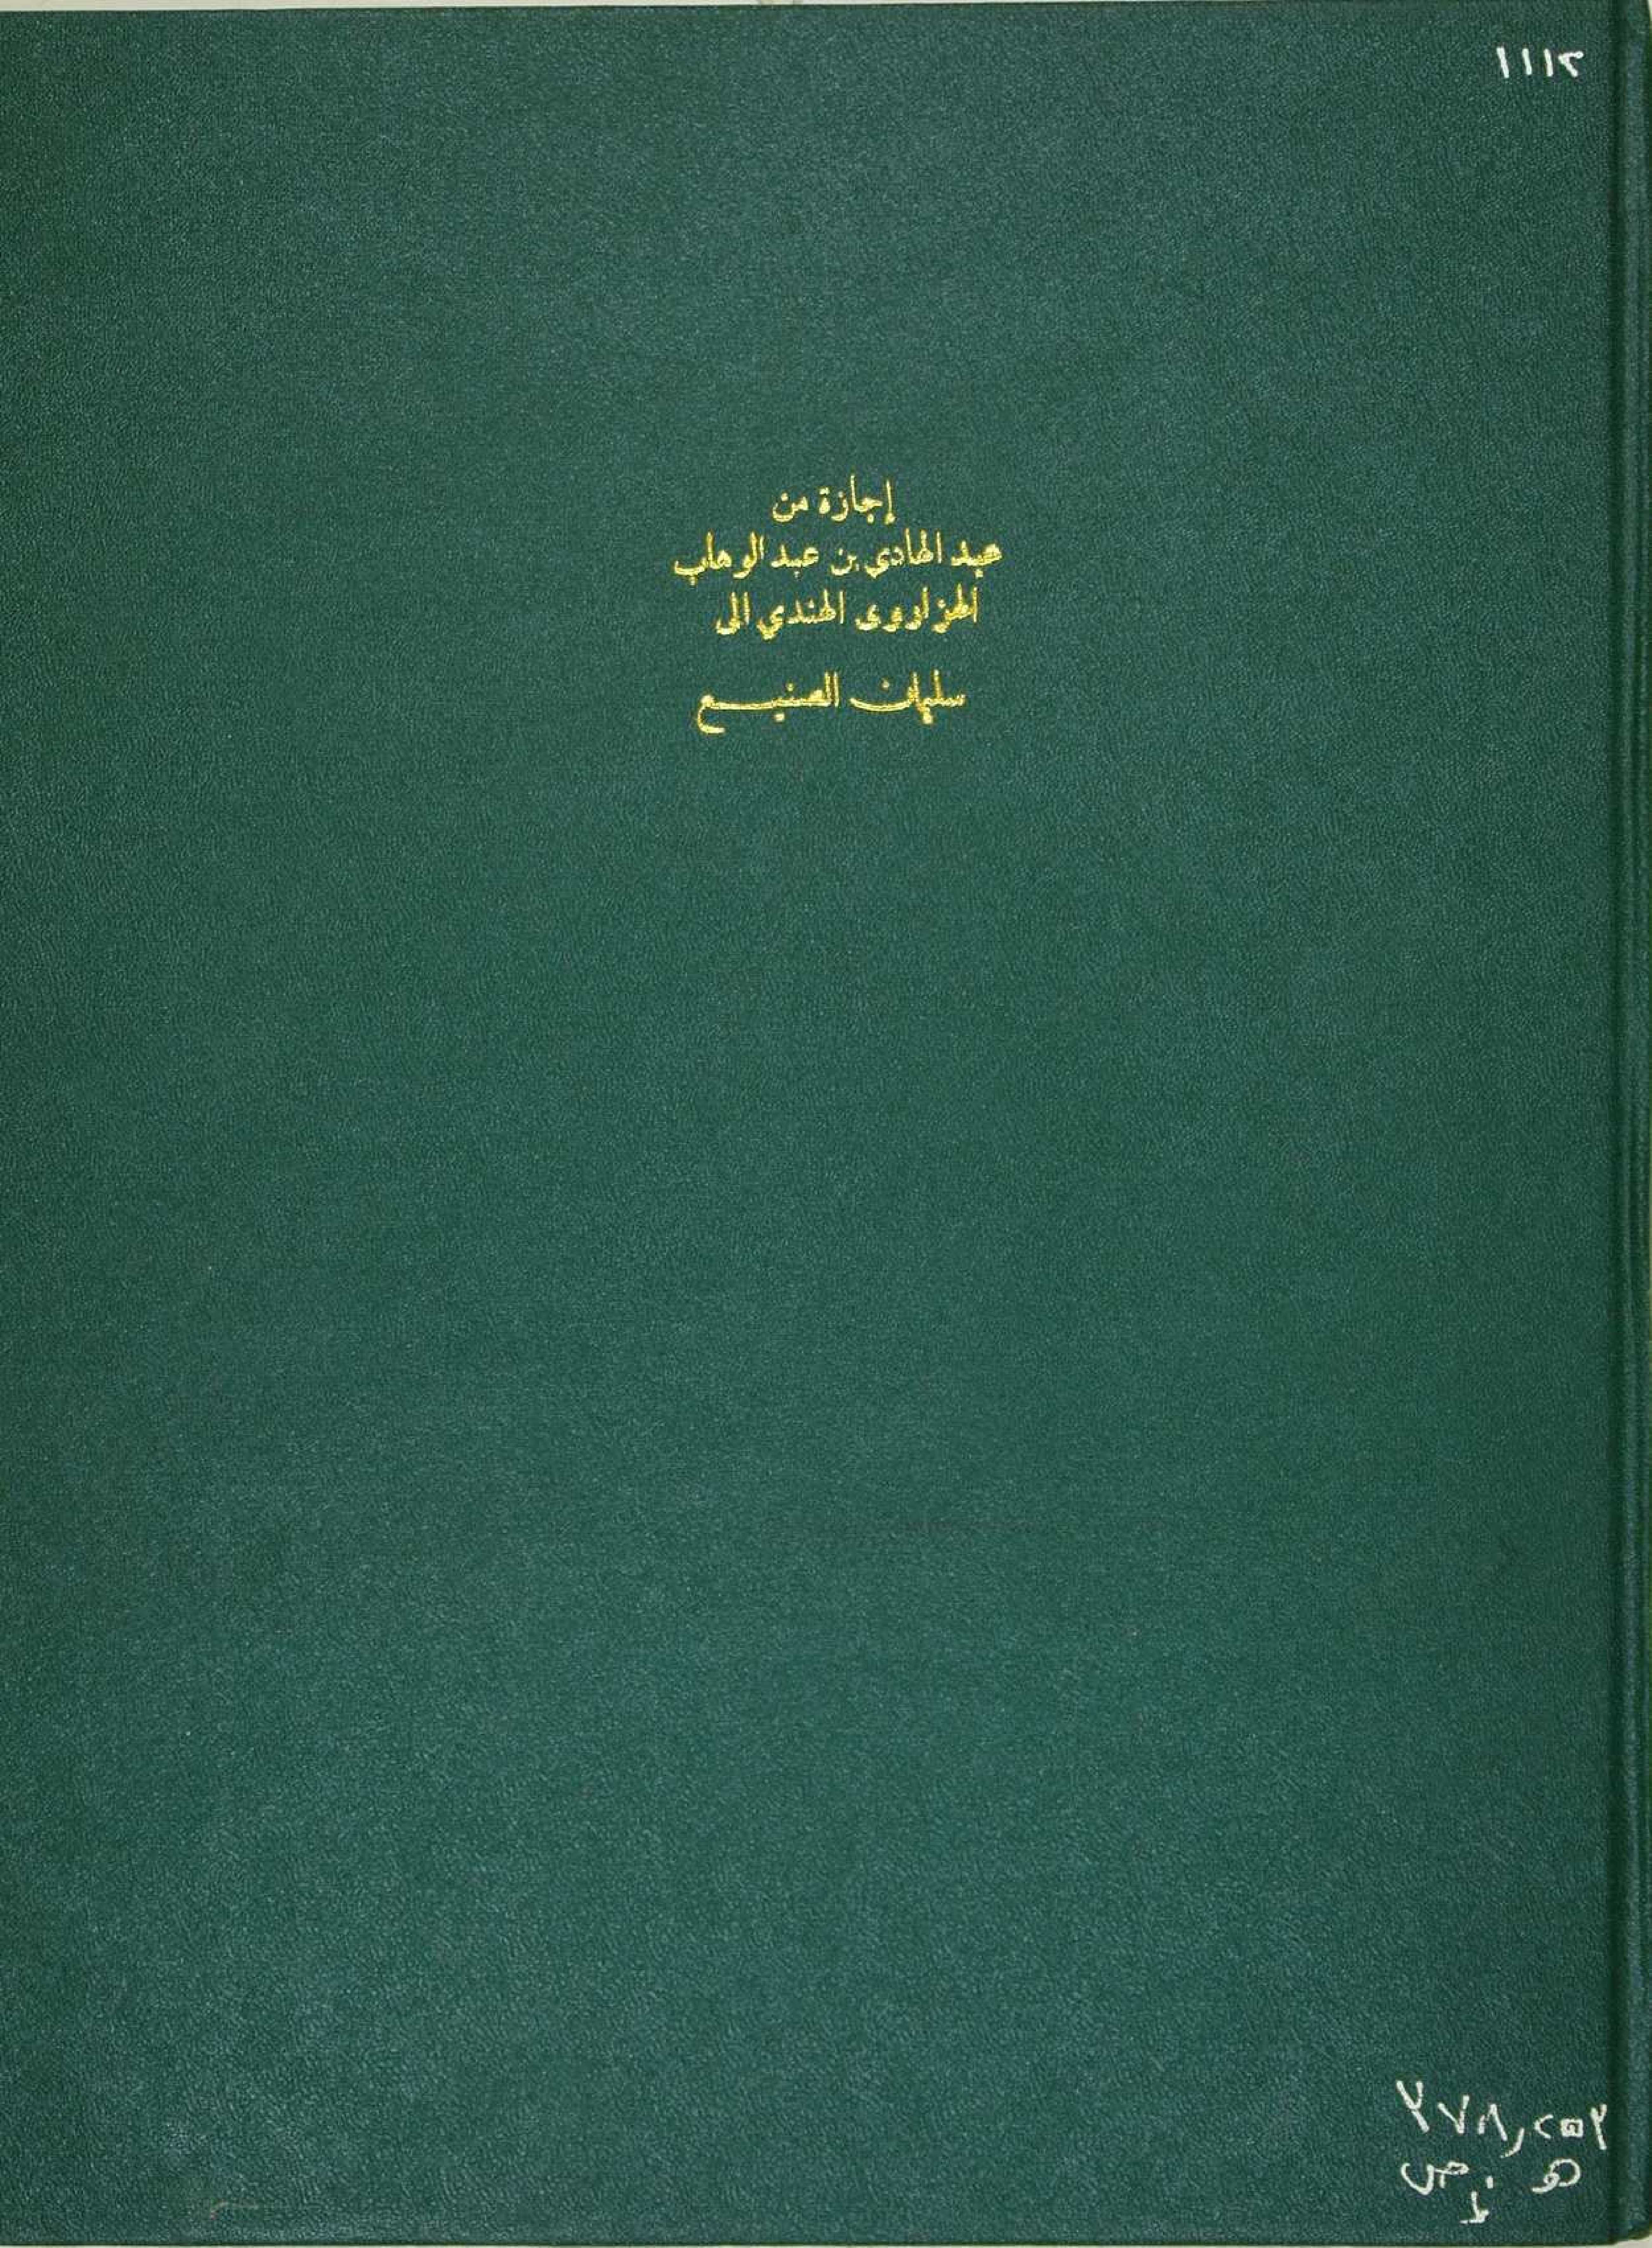 ١١١٢
إجازة من
عبد الهادي بن عبد الوهاب
الهزاروى الهندي الى
سليمان الصنيع
هـ ص